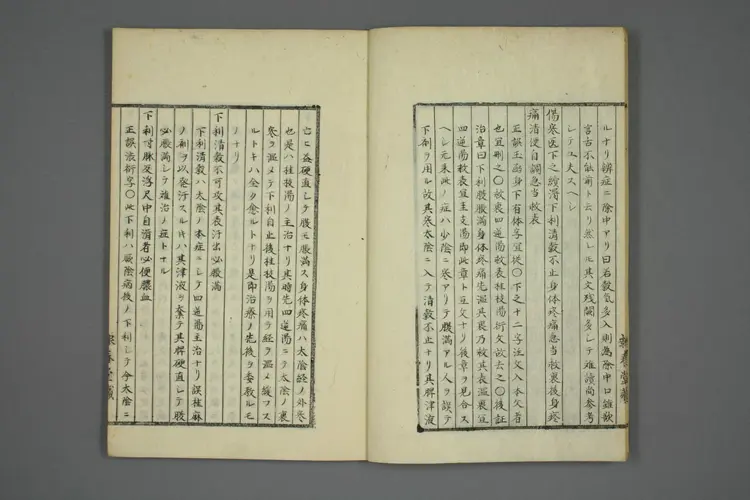 ルナリ辨症ニ除中アリ曰若穀氣多入則為除中口雖欲
言古不能前ト云リ然レ𪜈其文残闕多シテ難讀尚参考
シテ
傷寒医下之續得下利清穀不止身体疼痛急当救裏後身疼
痛清便自調急当救表
正誤玉函身下有体字宜従〇下之十二字注文入本文者
也宜刪之〇救裏四逆湯救表桂枝湯衍文故去之〇後証
治章曰下利腹脹満身体疼痛先温其裏乃救其表温裏宜
四逆湯救表宜主支湯即此章ト互文ナリ後章ヲ見合ス
ヘシ元来此ノ症ハ少陰ニ寒アリテ腹満アル人ヲ誤テ
下剤ヲ用ル故其寒太陰ニ入テ清穀不止ナリ其脾津液
亡ヒ益硬直シテ腹モ脹満ス身体疼痛ハ太陰経ノ外寒
也是ハ桂枝湯ノ主治ナリ其時先四逆湯ニテ太陰ノ裏
寒ヲ温メテ下利自止後桂枝湯ヲ用テ経ヲ温メ緩フス
ルトキハ全ク愈ルトナリ是即治療ノ先後ヲ委教ルモ
ノナリ
下利清穀不可攻其表汗出必脹満
下利清穀ハ太陰ノ本症ニシテ四逆湯主治ナリ誤桂麻
ノ剤ヲ以発汗スルキハ其津液ヲ棄テ其脾硬直シテ腹
必脹満シテ難治ノ症トナル
下利寸脉反浮尺中自濇者必便膿血
正誤浪衍字〇此下利ハ厥陰病後ノ下利シテ今太陰ニ